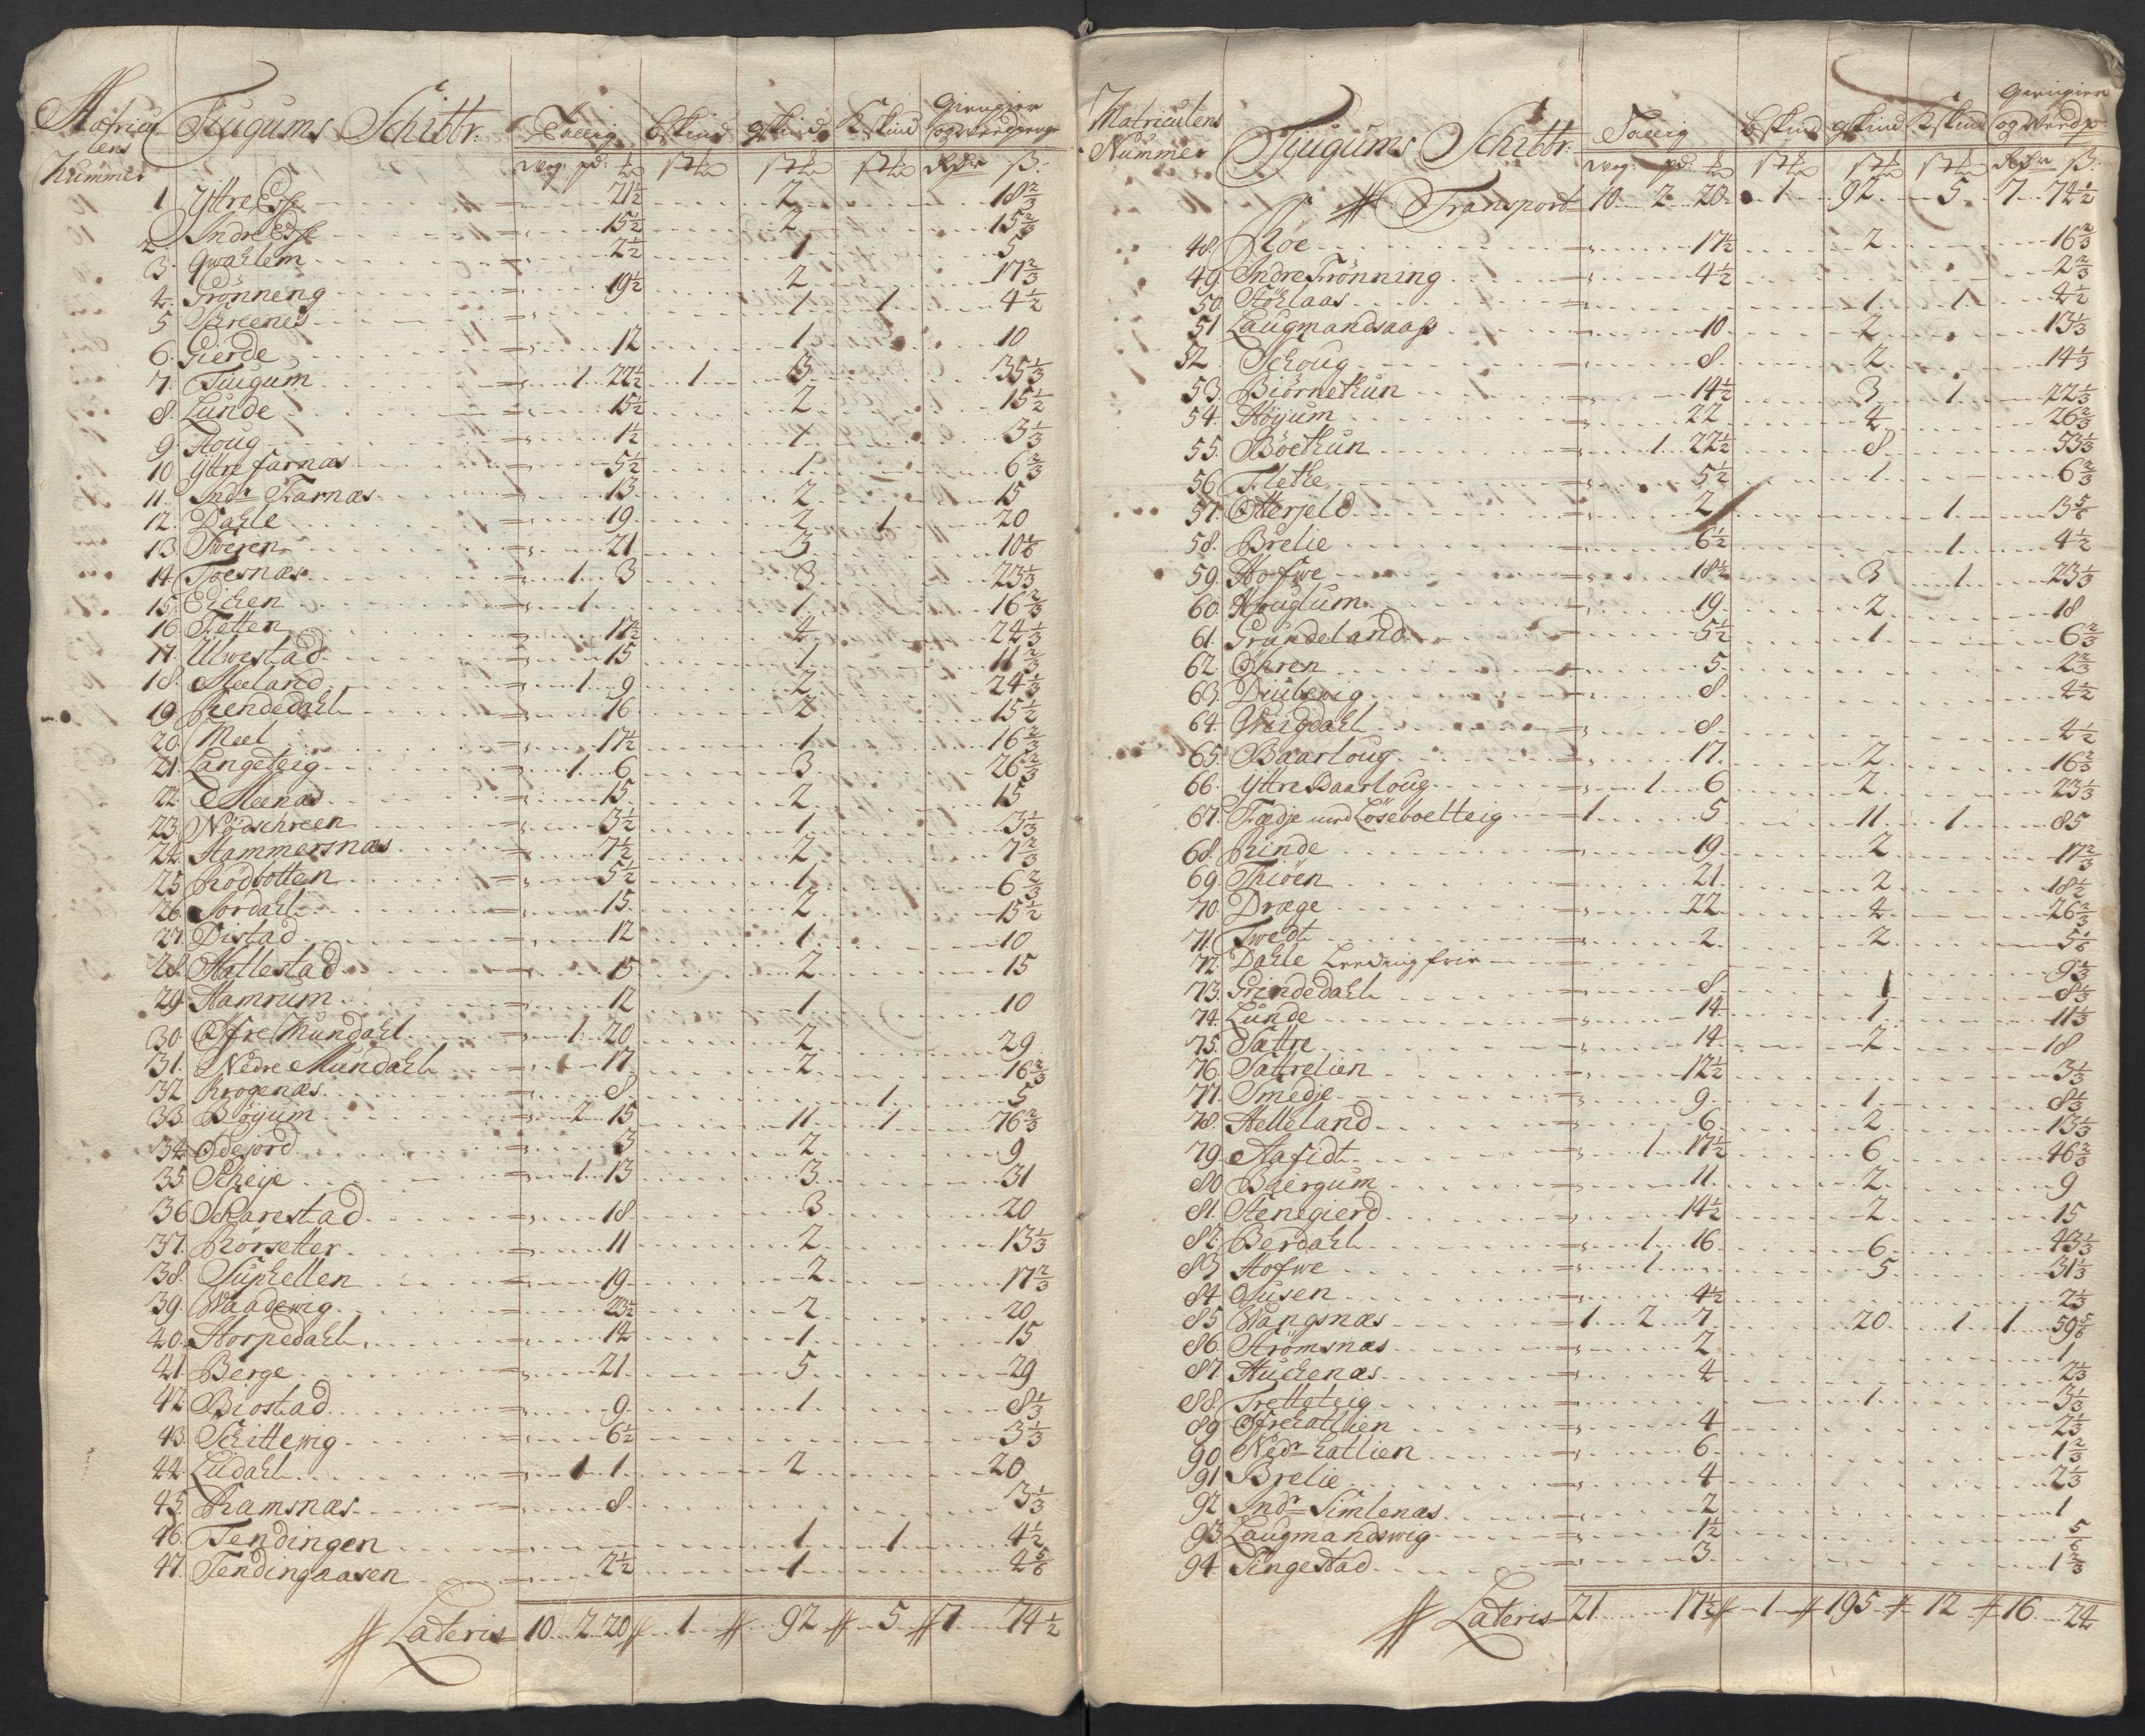 Matricu
lens
Nummer
Tiugums Schibbr:
Tallig Bskind gskind Kskind
og Werdpenge
1 Yttre Esse 21½ 2 18⅔
2 Indre Esse 15½ 2 15⅔
3 Qwahlem 2½ 1 5
4 Grönneng 19½ 2 17⅔
5 Skrenes 1 1 4½
6 Gierde 12 1 10
7 Tiugum 1 22½ 1 3 35⅓
8 Lunde 15½ 2 15½
9 Houg 1½ 1 3⅓
10 Yttre farnæs 5½ 1 6⅔
11 Indr Farnæs 13 2 15
12 Dahle 19 2 1 20
13 Sweren 21 3 10⅙
14 Toesnæs 1 3 3 23⅓
15 Eichen 1 1 16⅔
16 Fetten 17½ 4 24⅓
17 Ulwestad 15 1 11⅔
18 Meeland 1 9 2 24⅓
19 Rendedahl 16 2 15½
20 Meel 17½ 1 16⅔
21 Langeteig 1 6 3 26⅔
22 Meenæs 15 2 15
23 Nödschreen 3½ 1 3⅓
24 Hammersnæs 7½ 2 7⅔
25 Rödbotten 5½ 1 6⅔
26 Jordahl 15 2 15½
27 Distad 12 1 10
28 Hatlestad 15 2 15
29 Hamrum 12 1 10
30 Öfre Mundahl 1 20 2 29
31 Nedre Mundahl 17 2 16⅔
32 Krogenæs 8 1 5
33 Böyum 2 15 11 1 76⅔
34 Ödejord 3 2 9
35 Scheije 1 13 3 31
36 Skarestad 18 3 20
37 Rörsetter 11 2 13⅓
38 Suphellen 19 2 17⅔
39 Waadewig 23½ 2 20
40 Horpedahl 14 1 15
41 Berge 21 5 29
42 Biostad 9 1 8⅓
43 Schittewig 6½ 3⅓
44 Ludahl 1 1 2 20
45 Ramsnæs 8 3⅓
46 Tendingen 1 1 4½
47 Tendingaasen 2½ 1 4⅚
Lateris 10 2 20 1 92 5 7 74½
Matriculens
Nummer
Tiugums Schibbr:
Tallig Bskind gskind Kskind
og Werdp:
Transport 10 2 20 1 92 5 7 74½
48 Röe 17½ 2 16⅔
49 Indre Frönning 4½ 2⅔
50 Stöhlaas 1 1 4½
51 Laugmandsaas 10 2 13⅓
52 Schoug 8 2 14⅓
53 Biörnethun 14½ 3 1 22⅓
54 Höyum 22 4 26⅔
55 Böethun 1 22½ 8 53⅓
56 Flethe 5½ 1 6⅔
57 Otterjeld 2 1 3⅚
58 Brelie 6½ 1 4½
59 Hofwe 18½ 3 1 23⅓
60 Houglum 19 2 18
61 Grundeland 5½ 1 6⅔
62 Öhren 5 2⅔
63 Diubewig 8 4½
64 Weigdahl 8 4½
65 Baarloug 17 2 16⅔
66 Yttre Baarloug 1 6 2 23⅓
67 Fædje med Löseboetteig 1 5 11 1 85
68 Rinde 19 2 17⅔
69 Thiöen 21 2 18½
70 Dræge 22 4 26⅔
71 Twedt 2 2 5⅙
72 Dahle Leeding frie 9⅓
73 Grindedahl 8 1 8⅓
74 Lunde 14 1 11⅓
75 Sættre 14 2 18
76 Sattrelien 12½ 3⅓
77 Smedje 9 1 8⅓
78 Helleland 6 2 13⅓
79 Aafidt 1 17½ 6 46⅔
80 Baergum 11 2 9
81 Stenigierd 14½ 2 15
82 Berdahl 1 16 6 43⅓
83 Hofwe 1 5 31⅓
84 Jusen 4½ 2⅓
85 Wangsnæs 1 2 7 20 1 1 59⅚
86 Strömsnæs 2 1
87 Huchenæs 4 2⅓
88 Tretteteig 1 3⅓
89 Öfre hatlien 4 2⅓
90 Nedr hatlien 6 1⅔
91 Brelie 4 2⅓
92 Indr Simlenæs 2 1
93 Laugmandswig 1½ ⅚
94 Tingestad 3 1⅔
Lateris 21 17½ 1 195 12 16 24